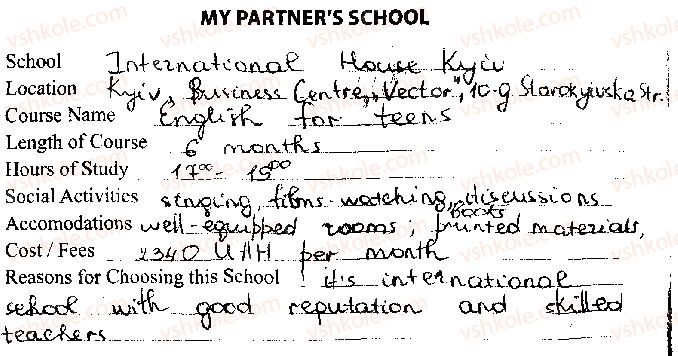 MY PARTNER'S SCHOOL
School International House Kyiv
Location Kyiv, Business Centre „Vector", 10-g Starokyivska Str.
Course Name English for teens
Length of Course 6 months
Hours of Study 17⁰⁰ -
Social Activities singing, films watching, discussions
books
Accomodations well-equipped rooms, printed materials,
Cost / Fees 2340 UAH per month
Reasons for Choosing this School it's international
school with good reputation and skilled
teachers
vshkole.com